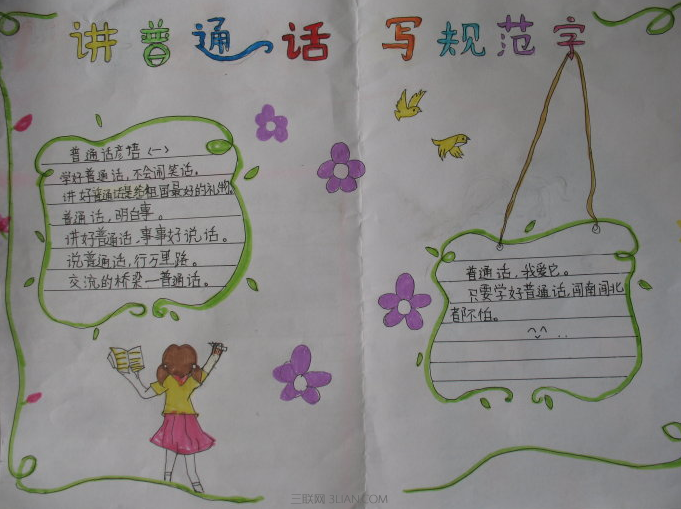 讲普通话 写规范字
普通话彦悟〈一〉
学好普通话，不会闹笑话。
讲好普通话是给祖国最好的礼物。
普通话，明白事。
讲好普通话、事事好说话。
说普通话，行万里路。
交流的桥梁—普通话。
普通话，我爱它。
只要学好普通话，闯南闯北
都不怕。
三联网 3LIAN.COM